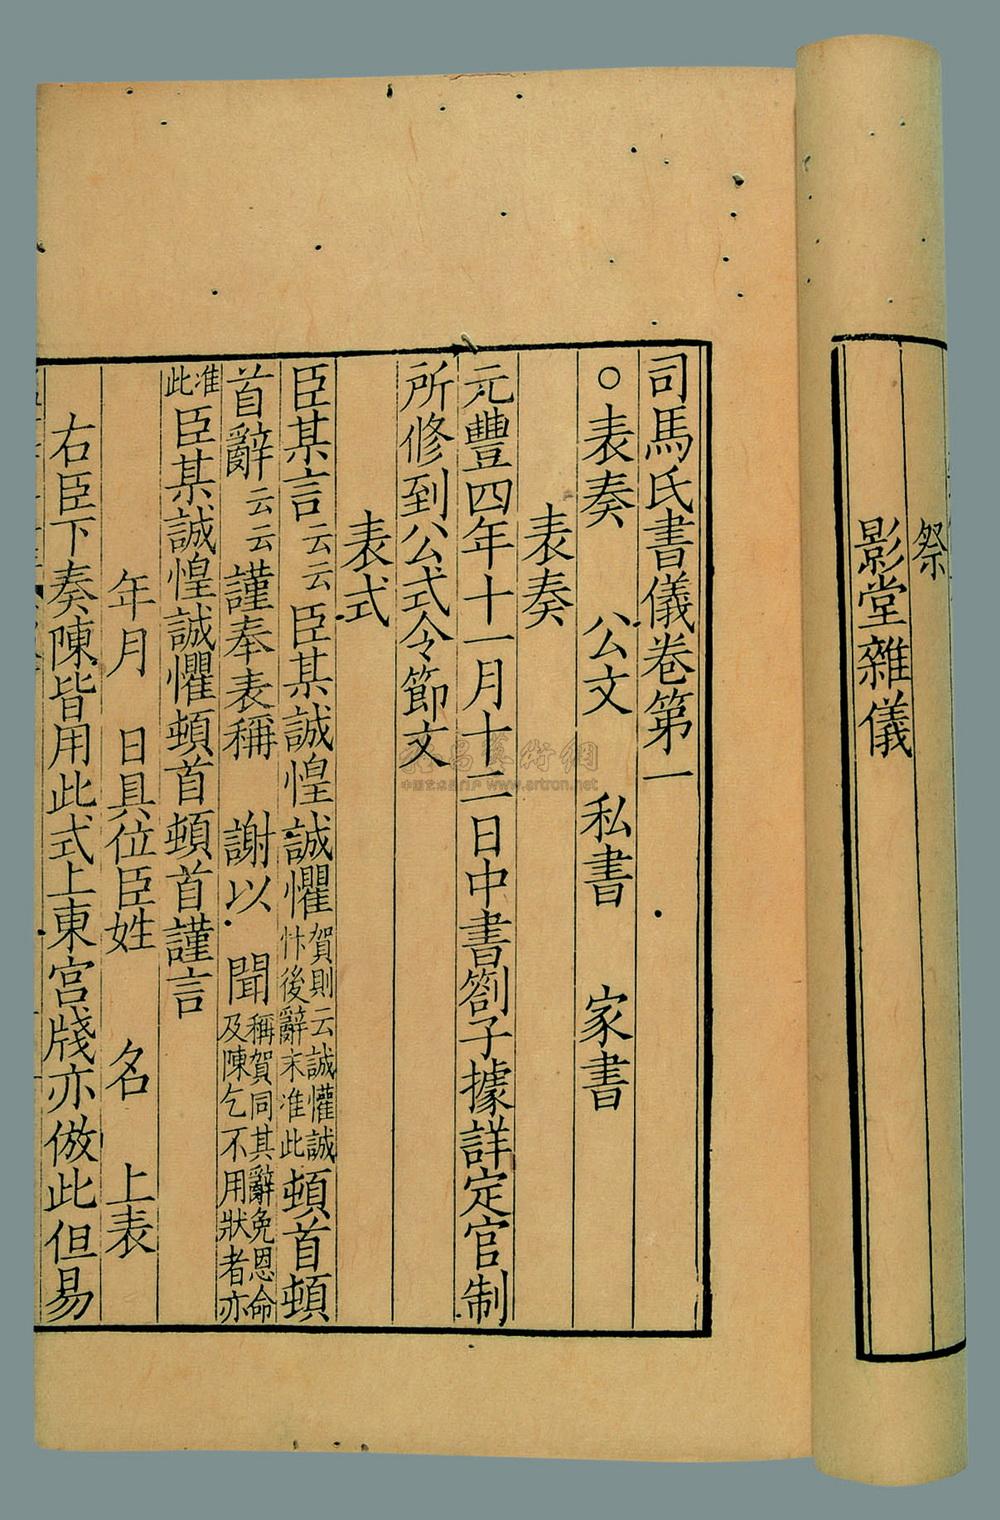 祭
影堂雜儀
司馬氏書儀卷第一
○表奏 公文 私書 家書
表奏
元豐四年十一月十二日中書劄子據詳定官制
所修到公式令節文
表式
臣某言云云臣某誠惶誠懼賀則云誠懽誠忭後辭末准此頓首頓
首辭云云謹奉表稱 謝以 聞稱賀同其辭免恩命及陳乞不用狀者亦
准此臣某誠惶誠懼頓首頓首謹言
年月 日具位臣姓 名 上表
右臣下奏陳皆用此式上東宮牋亦倣此但易
藝術網
www.artron.net